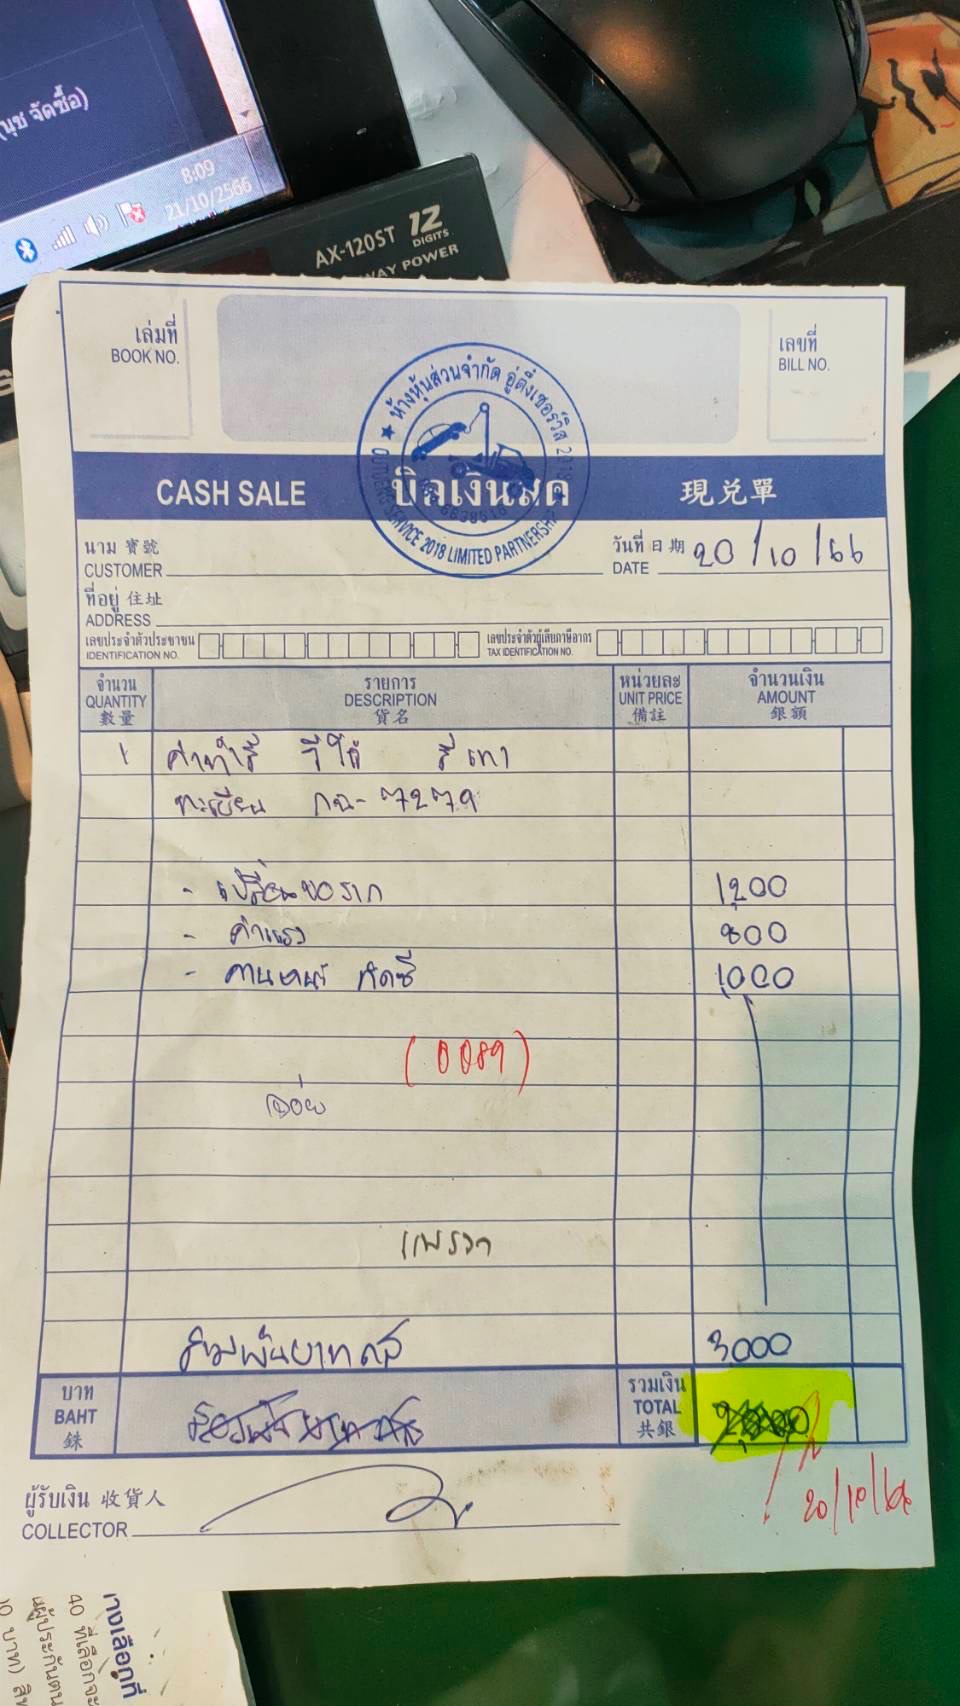 (นุช จัดซื้อ)
8:09
21/10/2566
AX-120ST 12
DIGITS
WAY POWER
เล่มที่
BOOK NO.
เลขที่
BILL NO.
★ ห้างหุ้นส่วนจำกัด อู่ตึ๋งเซอร์วิส 2018
SERVICE 2018 LIMITED PARTNERSHIP
CASH SALE บิลเงินสด 現兑單
นาม 寶號
CUSTOMER
วันที่ 日期 20/10/66
DATE
ที่อยู่ 住址
ADDRESS
เลขประจำตัวประชาชน
IDENTIFICATION NO.
เลขประจำตัวผู้เสียภาษีอากร
TAX IDENTIFICATION NO.
จำนวน รายการ หน่วยละ จำนวนเงิน
QUANTITY DESCRIPTION UNIT PRICE AMOUNT
數量 貨名 備註 銀額
1 สีเทา
ทะเบียน 7279
- เปลี่ยนขอลาก 1200
- ค่าแรง 800
- คานหน้า คัดซี 1,000
(0089)
3,000
บาท
BAHT
銖
รวมเงิน
TOTAL
共銀
20/10/66
ผู้รับเงิน 收貨人
COLLECTOR
ทางเลือกที่
40 ที่เลือกจะ
ผู้ประกันตน
บาท)